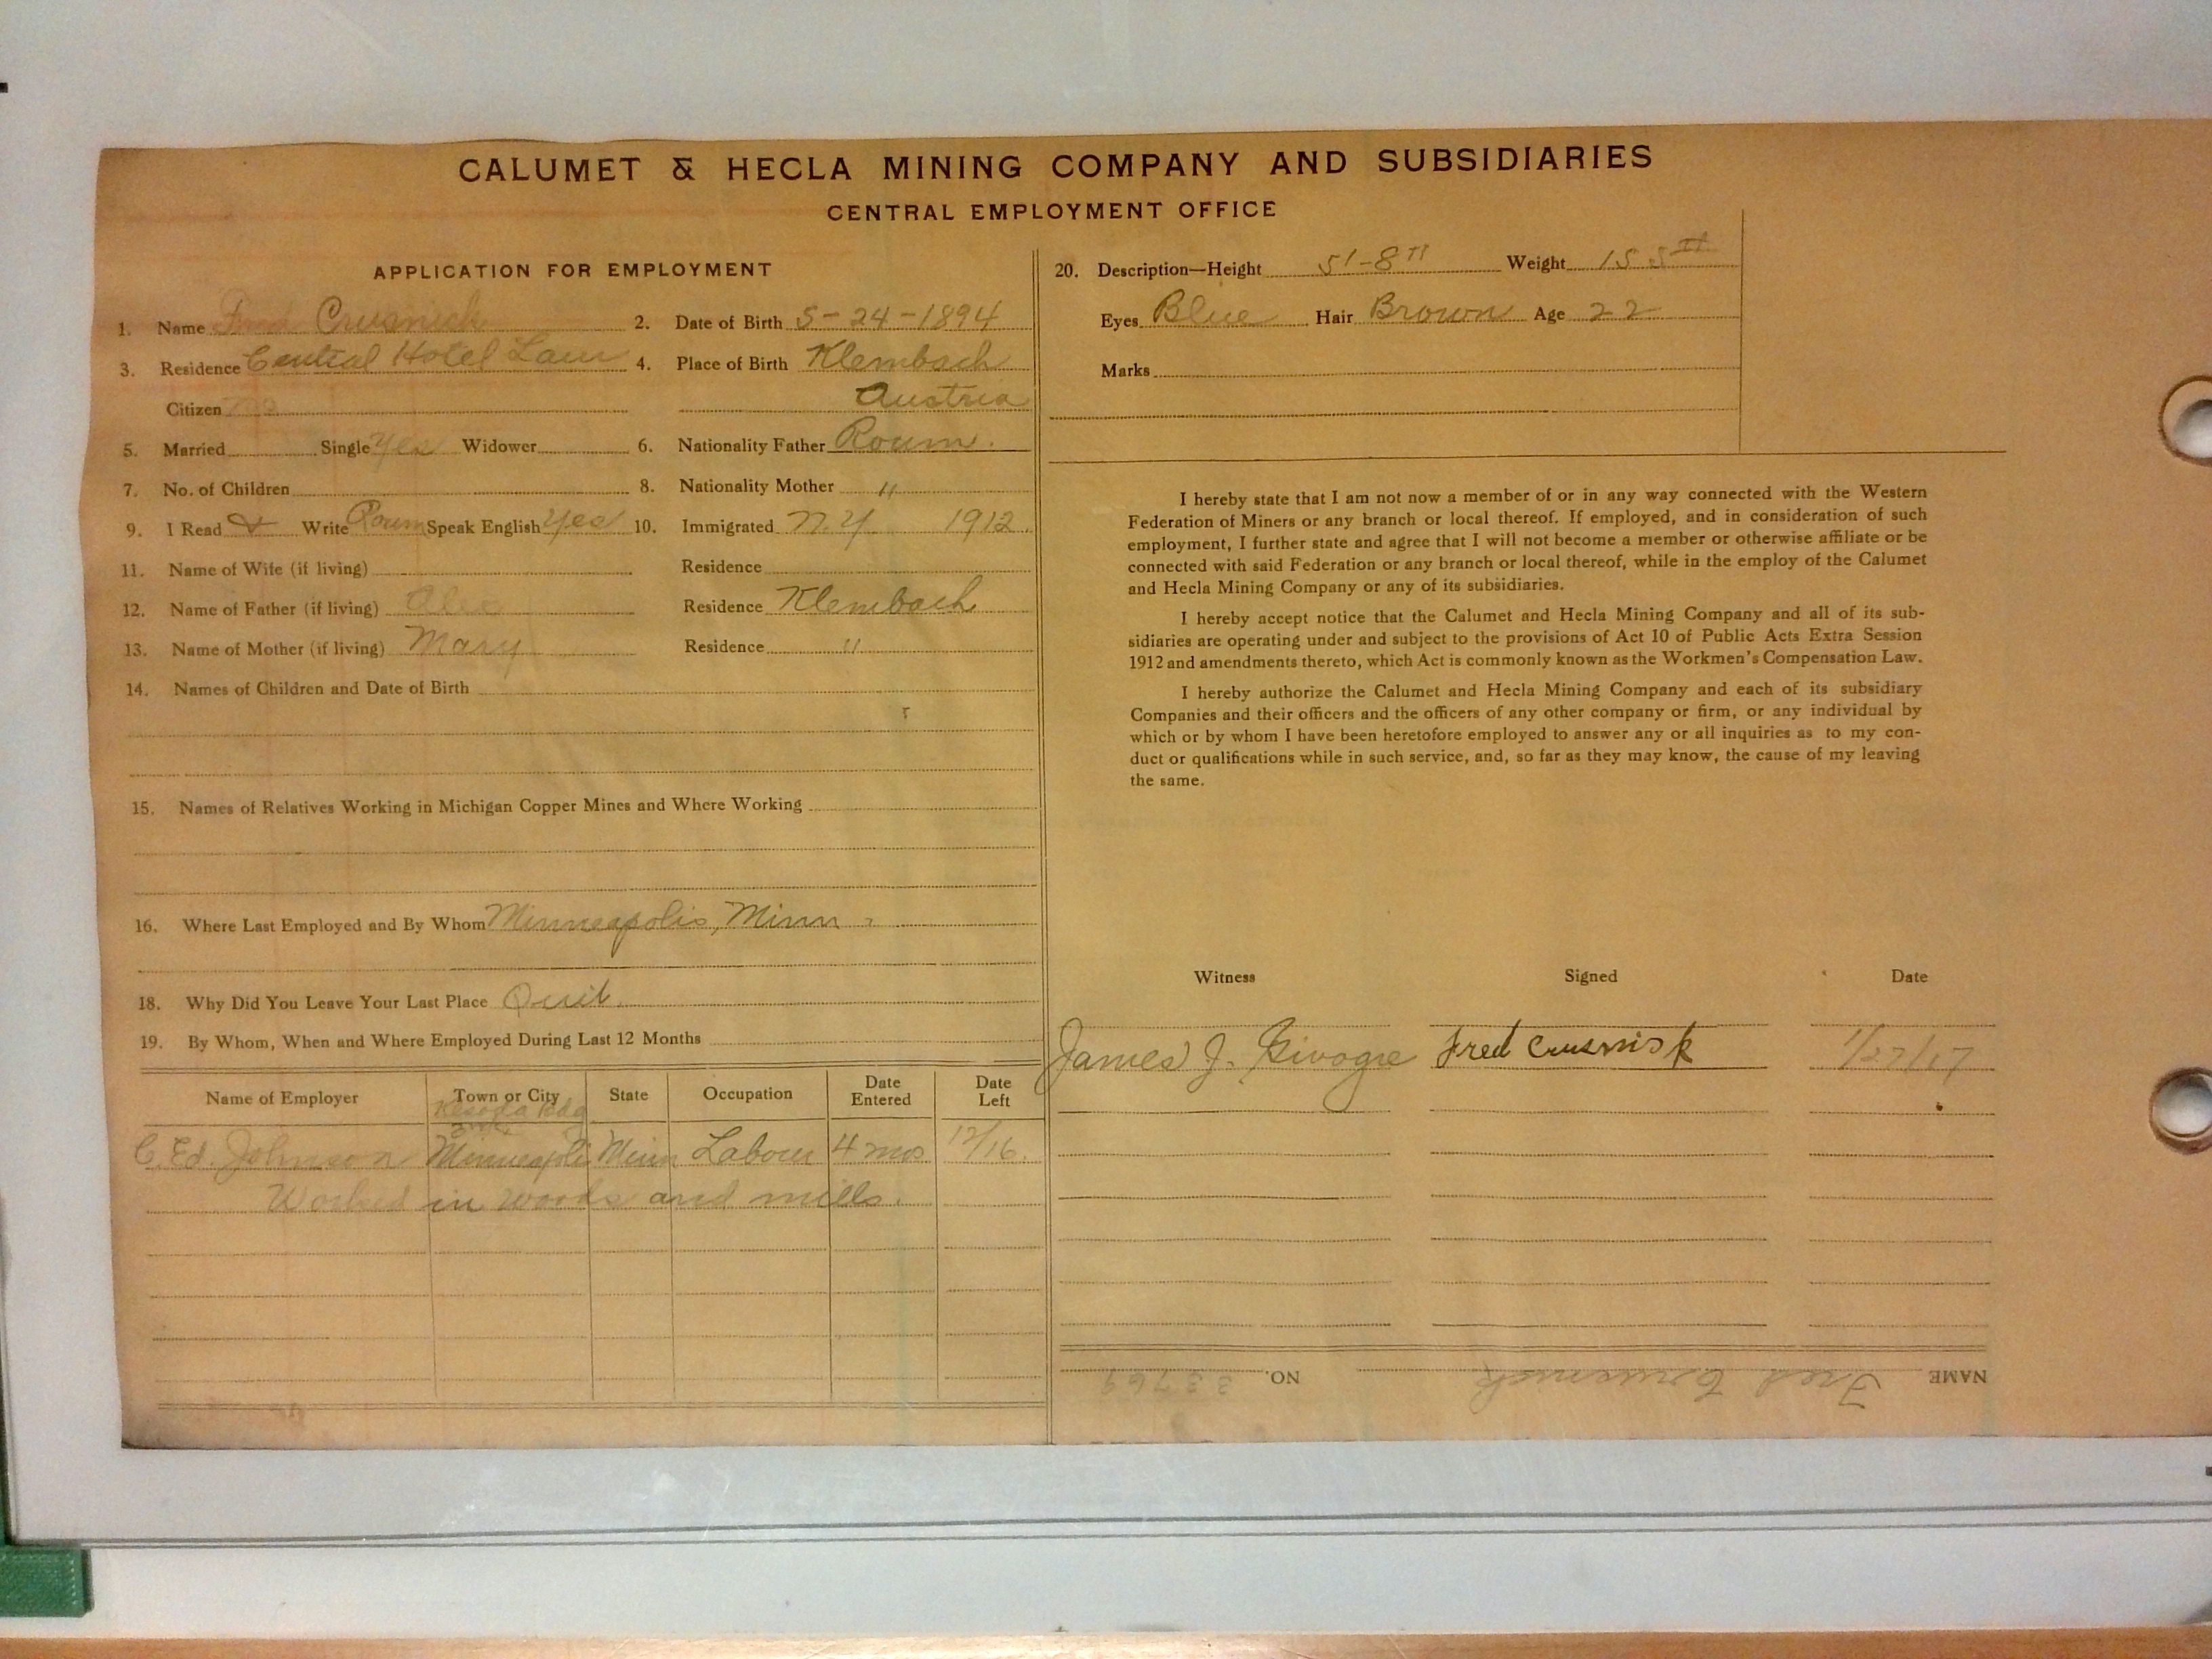 CALUMET & HECLA MINING COMPANY AND SUBSIDIARIES
CENTRAL EMPLOYMENT OFFICE
APPLICATION FOR EMPLOYMENT
1. Name Fred Crusnick
2. Date of Birth 5-24-1894
3. Residence Central Hotel Laur
4. Place of Birth Klembach
Austria
Citizen no
5. Married Single Yes Widower
6. Nationality Father Roum.
7. No. of Children
8. Nationality Mother "
9. I Read & Write Roum Speak English Yes
10. Immigrated N.Y. 1912
11. Name of Wife (if living) Residence
12. Name of Father (if living) Residence Klembach
13. Name of Mother (if living) Mary Residence "
14. Names of Children and Date of Birth
15. Names of Relatives Working in Michigan Copper Mines and Where Working
16. Where Last Employed and By Whom Minneapolis, Minn
18. Why Did You Leave Your Last Place Quit.
19. By Whom, When and Where Employed During Last 12 Months
Name of Employer Town or City State Occupation Date Entered Date Left
C. Ed. Johnson Minneapolis Minn Labour 4 mos 12/16.
Worked in woods and mills.
20. Description—Height 5'-8" Weight 155
Eyes Blue Hair Brown Age 22
Marks
I hereby state that I am not now a member of or in any way connected with the Western
Federation of Miners or any branch or local thereof. If employed, and in consideration of such
employment, I further state and agree that I will not become a member or otherwise affiliate or be
connected with said Federation or any branch or local thereof, while in the employ of the Calumet
and Hecla Mining Company or any of its subsidiaries.
I hereby accept notice that the Calumet and Hecla Mining Company and all of its sub-
sidiaries are operating under and subject to the provisions of Act 10 of Public Acts Extra Session
1912 and amendments thereto, which Act is commonly known as the Workmen's Compensation Law.
I hereby authorize the Calumet and Hecla Mining Company and each of its subsidiary
Companies and their officers and the officers of any other company or firm, or any individual by
which or by whom I have been heretofore employed to answer any or all inquiries as to my con-
duct or qualifications while in such service, and, so far as they may know, the cause of my leaving
the same.
Witness Signed Date
James J. Fred Crusnisk 1/27/17
NAME Fred Crusnick NO. 33769